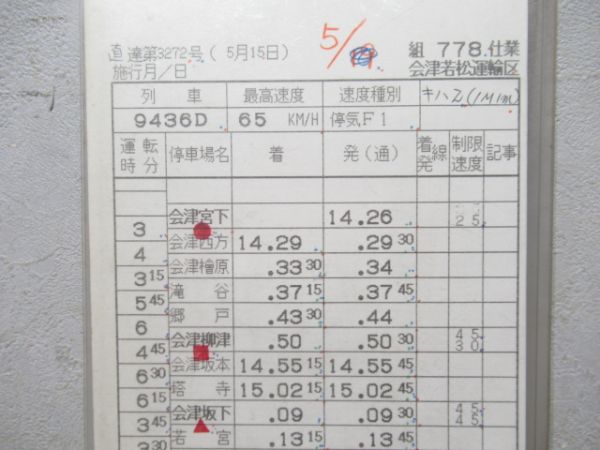 直達第3272号(5月15日)
施行月/日
5/19
組 778 仕業
会津若松運輸区
列 車 最高速度 速度種別 キハ2(1M1m)
9436D 65 KM/H 停気F1
運転時分 停車場名 着 発(通) 着線発 制限速度 記事
会津宮下 14.26 25
3
会津西方 14.29 .29 30
4
会津檜原 .33 30 .34
3 15
滝谷 .37 15 .37 45
5 45
郷戸 .43 30 .44
6
会津柳津 .50 .50 30 45 30
4 45
会津坂本 14.55 15 14.55 45
6 30
塔寺 15.02 15 15.02 45
6 15
会津坂下 .09 .09 30 45 45
3 45
若宮 .13 15 .13 45
3 30